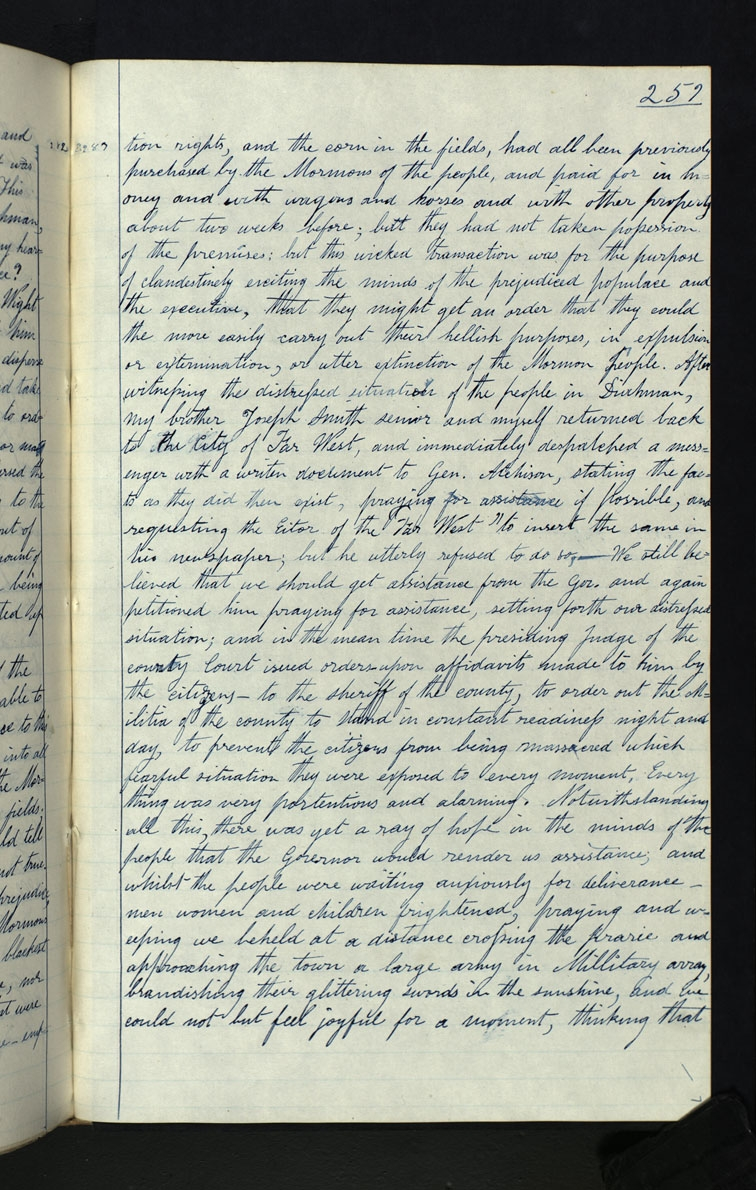 257
tion rights, and the corn in the fields, had all been previously
purchased by the Mormons of the people, and paid for in m=
oney and with wagons and horses and with other property
about two weeks before; butt they had not taken possession
of the premises: but this wicked transaction was for the purpose
of clandestinely exciting the minds of the prejudiced populace and
the executive, that they might get an order that they could
the more easily carry out their hellish purposes, in expulsion
or extermination, or utter extinction of the Mormon People. After
witnessing the distressed situation of the people in Diahman,
my brother Joseph Smith senior and myself returned back
to the City of Far West, and immediately despatched a mess-
enger with a writen document to Gen. Atchison, stating the fac-
ts as they did then exist, praying for assistance if possible, and
requesting the Eitor of the "Far West" to insert the same in
his newspaper; but he utterly refused to do so,— We still be=
lieved that we should get assistance from the Gov. and again
petitioned him praying for assistance, setting forth our distressed
situation; and in the mean time the presiding Judge of the
county Court isued orders upon affidavits made to him by
the citizens — to the sheriff of the county, to order out the M=
ilitia of the county to stand in constant readiness night and
day, to prevent the citizens from being massacred which
fearful situation they were exposed to every moment. Every
thing was very portentious and alarming. Notwithstanding
all this, there was yet a ray of hope in the minds of the
people that the Governor would render us assistance; and
whilst the people were waiting anxiously for deliverance —
men women and children frightened, praying and w=
eeping we beheld at a distance crossing the Prarie and
approaching the town a large army in Millitary array,
brandishing their glittering swords in the sunshine, and we
could not but feel joyful for a moment, thinking that
and
t was
This
hman,
ny hear=
ce?
Wight
him
disperse
nd take
to
ersed the
to the
out of
ount of
being
ted up
the
able to
ce to this
into all
the Mor
fields.
ld tell
not true.
prejudic
Mormons
blackest
, nor
t were
emp